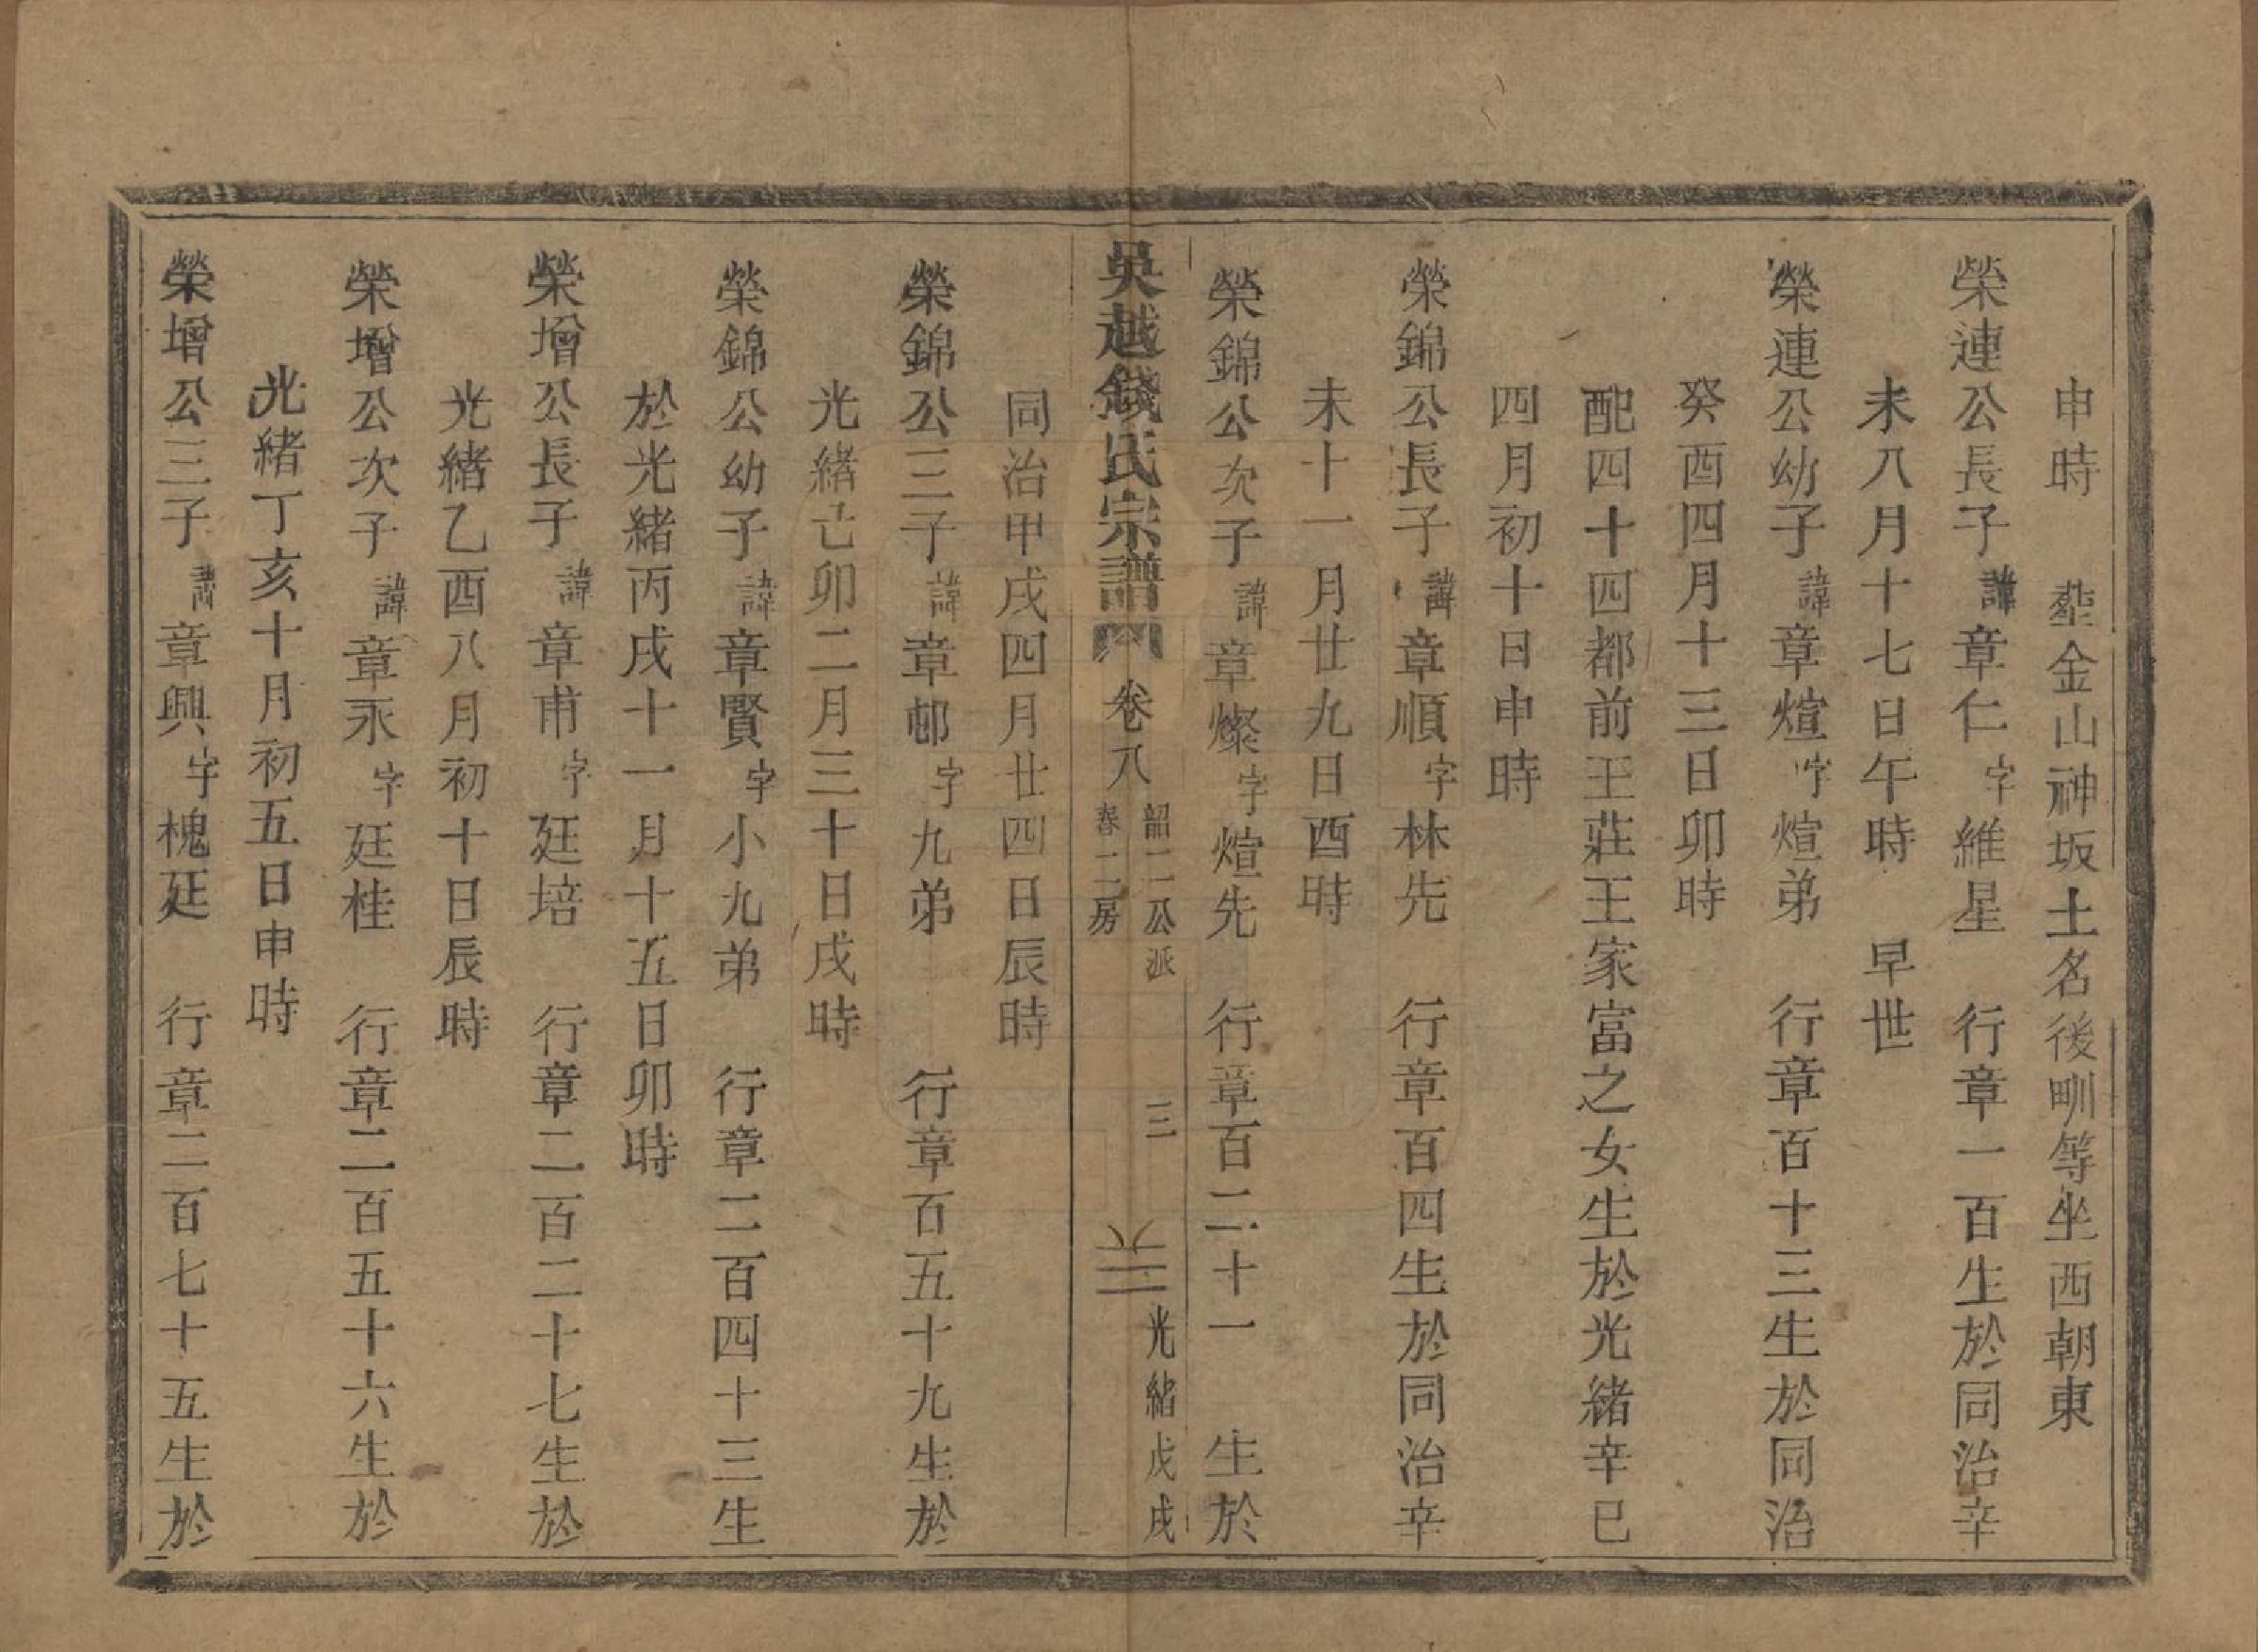 申時　塟金山神坂土名後甽等坐西朝東
榮連公長子諱章仁字維星　行章一百生於同治辛
未八月十七日午時　早世
榮連公幼子諱章煊字煊弟　行章百十三生於同治
癸酉四月十三日卯時
配四十四都前王莊王家富之女生於光緒辛巳
四月初十日申時
榮錦公長子諱章順字林先　行章百四生於同治辛
未十一月廿九日酉時
榮錦公次子諱章燦字煊先　行章百二十一　生於
吳越錢氏宗譜　卷八　韶二公派　春二房　三　光緒戊戌
同治甲戌四月廿四日辰時
榮錦公三子諱章邨字九弟　行章百五十九生於
光緒己卯二月三十日戌時
榮錦公幼子諱章賢字小九弟　行章二百四十三生
於光緒丙戌十一月十五日卯時
榮增公長子諱章甫字廷培　行章二百二十七生於
光緒乙酉八月初十日辰時
榮增公次子諱章永字廷桂　行章二百五十六生於
光緒丁亥十月初五日申時
榮增公三子諱章興字槐廷　行章二百七十五生於